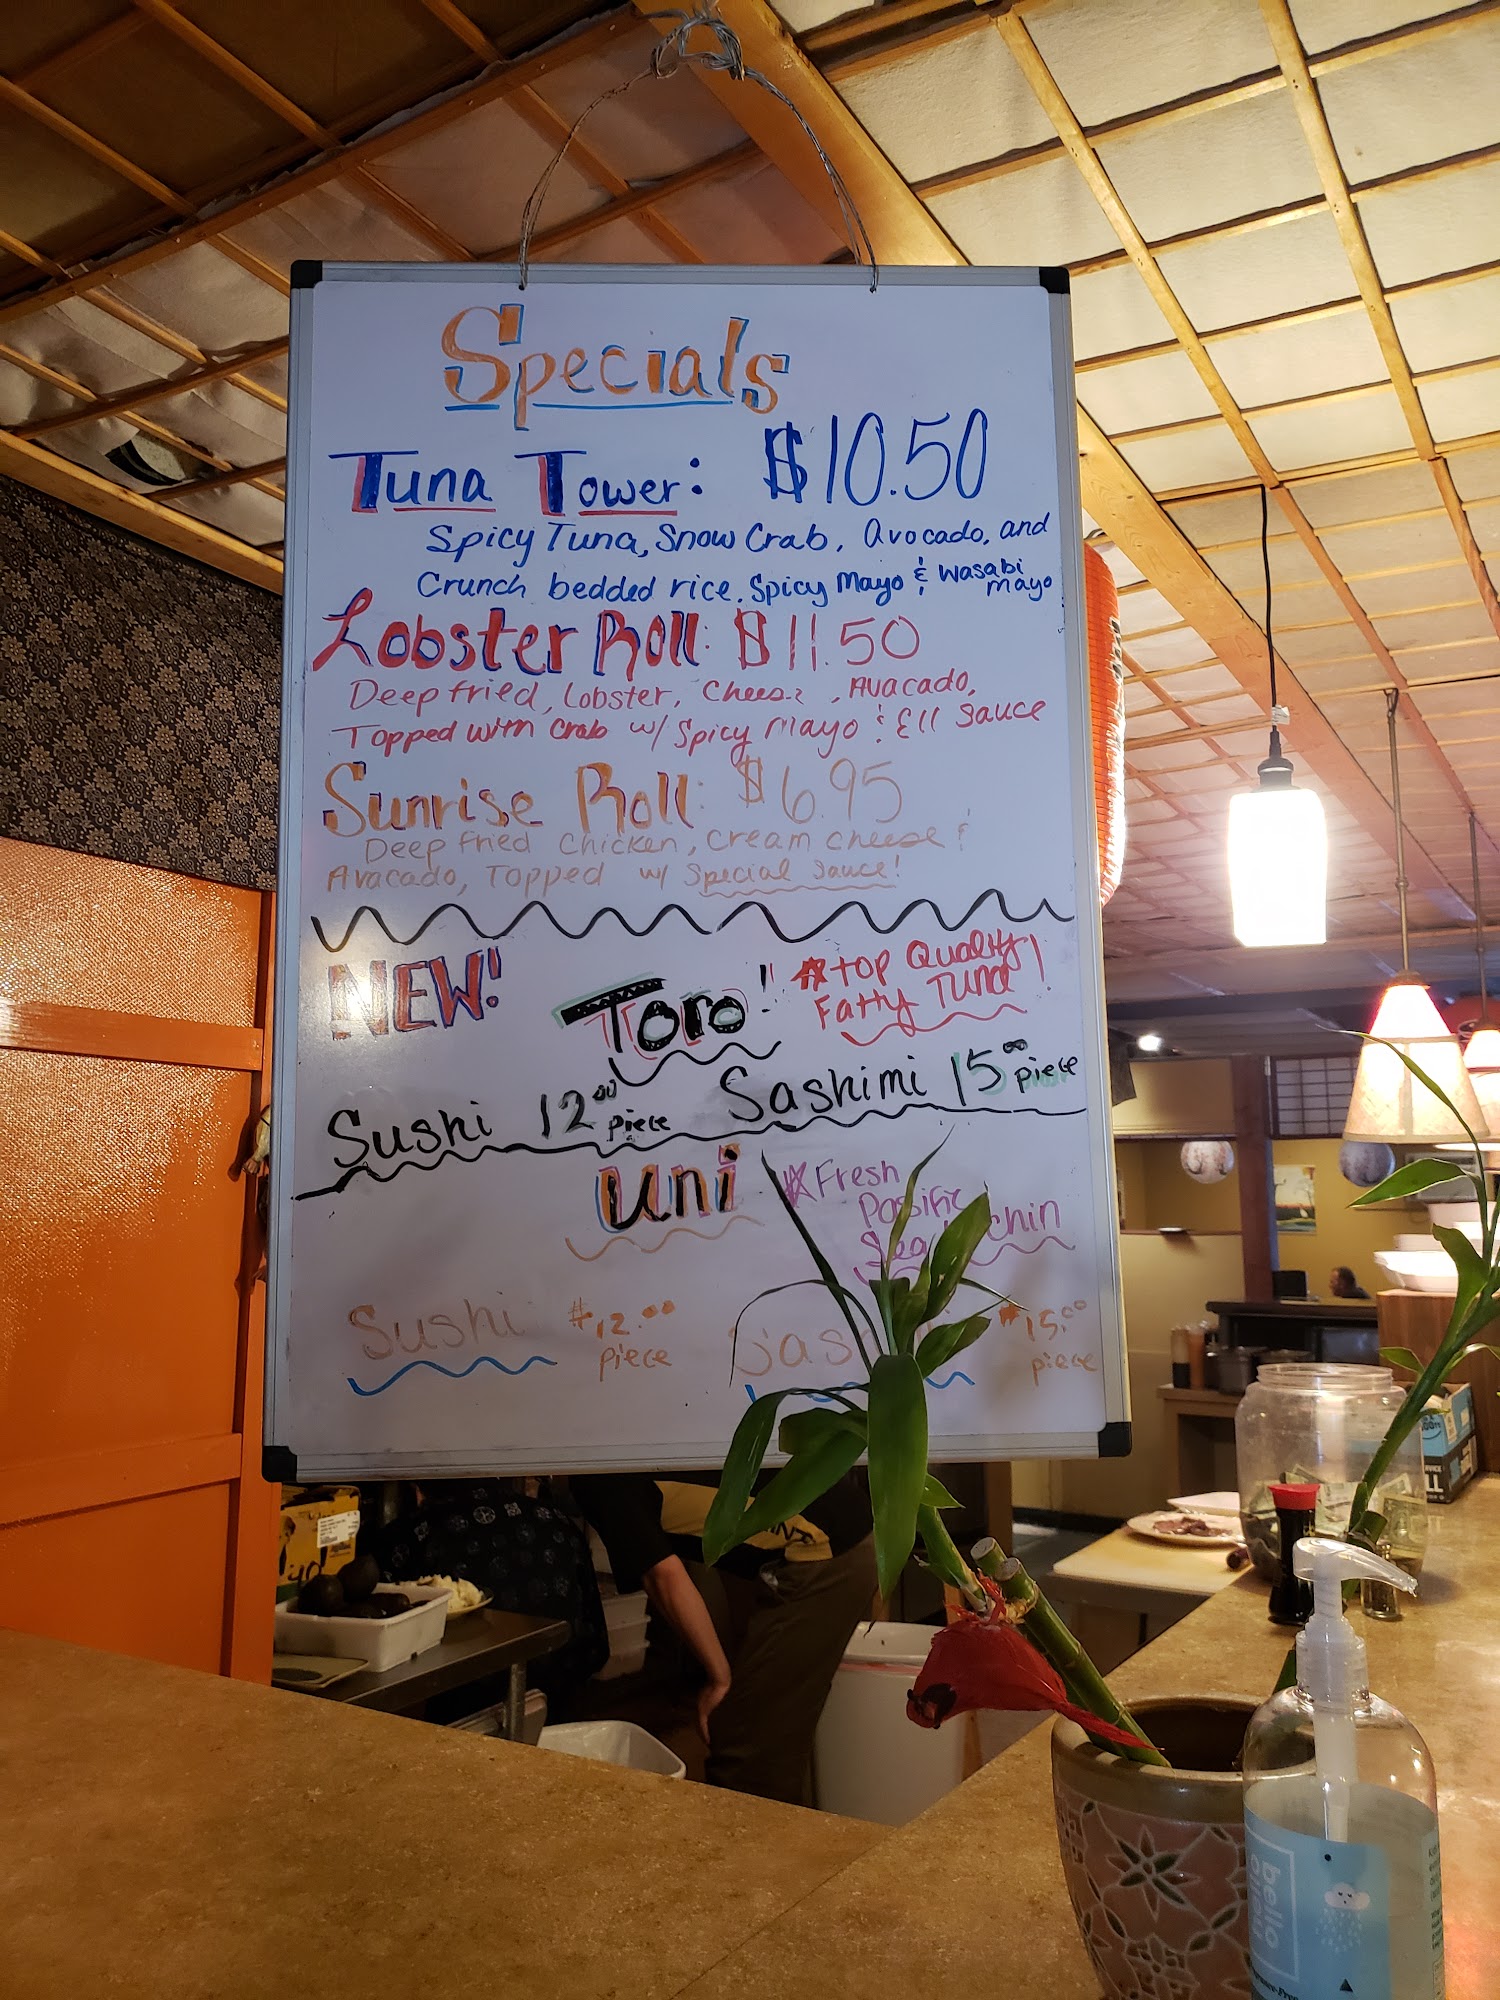 Specials
Tuna Tower: $10.50
Spicy Tuna, Snow Crab, Avocado, and
Crunch bedded rice. Spicy Mayo & Wasabi mayo
Lobster Roll: $11.50
Deep fried, Lobster, Cheese, Avacado,
Topped with Crab w/ Spicy Mayo & Ell Sauce
Sunrise Roll: $6.95
Deep Fried Chicken, Cream cheese &
Avacado, Topped w/ Special Sauce!
NEW!
Toro!
*top Quality
Fatty Tuna!
Sushi 12.00 piece
Sashimi 15.00 piece
Uni
*Fresh
Pasific
Sea chin
Sushi $12.00
piece
Sas
$15.00
piece
bello